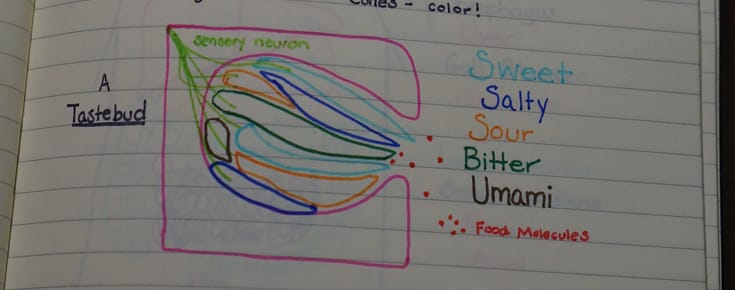 Cones - color!
sensory neuron
A
Tastebud
Sweet
Salty
Sour
Bitter
Umami
Food Molecules